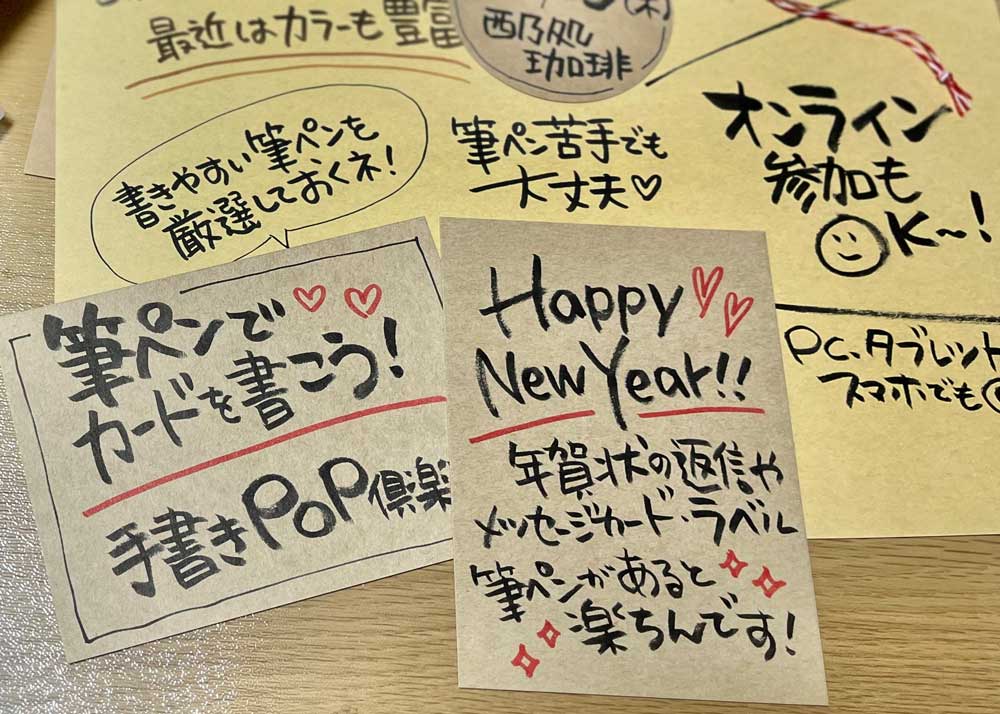 最近はカラーも豊富
(木)
西乃処
珈琲
書きやすい筆ペンを
厳選しておくネ!
筆ペン苦手でも
大丈夫♡
オンライン
参加も
OK〜!
PC、タブレット
スマホでも
筆ペンで
カードを書こう!
手書きPOP倶楽
Happy
New Year!!
年賀状の返信や
メッセージカード・ラベル
筆ペンがあると
楽ちんです!